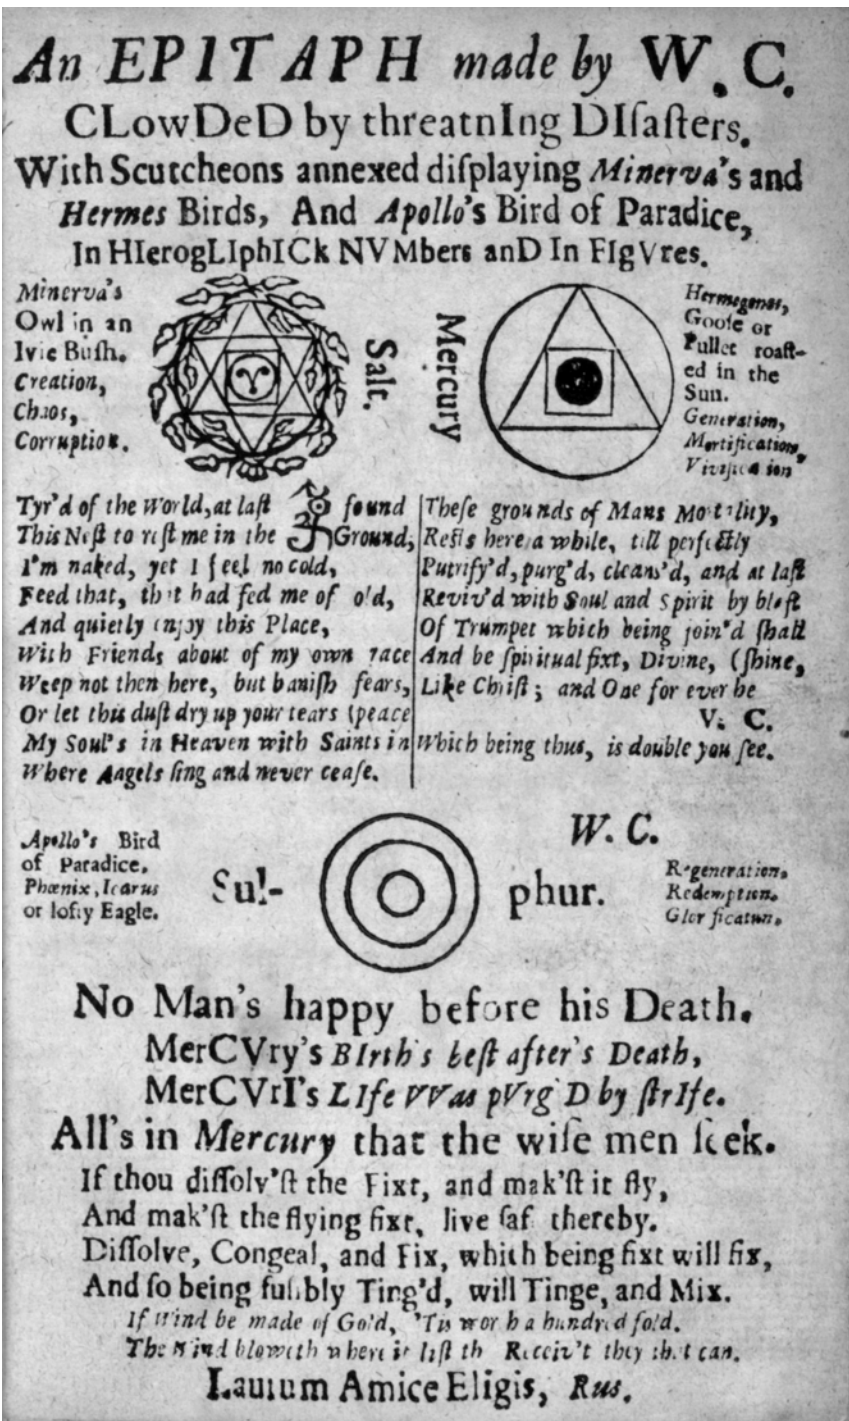 An EPITAPH made by W. C.
CLowDeD by threatnIng DIſaſters.
With Scutcheons annexed diſplaying Minerva's and
Hermes Birds, And Apollo's Bird of Paradice,
In HIerogLIphICk NVMbers anD In FIgVres.
Minerva's
Owl in an
Ivie Buſh.
Creation,
Chaos,
Corruption.
Salt.
Mercury
Hermogenes,
Gooſe or
Pullet roaſt-
ed in the
Sun.
Generation,
Mortification,
Tyr'd of the World, at laſt found
This Neſt to reſt me in the Ground,
I'm naked, yet I feel no cold,
Feed that, that had fed me of old,
And quietly injoy this Place,
With Friends about of my own race
Weep not then here, but baniſh fears,
Or let this duſt dry up your tears (peace
My Soul's in Heaven with Saints in
Where Angels ſing and never ceaſe.
Theſe grounds of Mans Mortality,
Reſts here a while, till perfectly
Putrify'd, purg'd, cleans'd, and at laſt
Reviv'd with Soul and Spirit by blaſt
Of Trumpet which being join'd ſhall
And be ſpiritual fixt, Divine, (ſhine,
Like Chriſt; and One for ever be
V. C.
Which being thus, is double you ſee.
Apollo's Bird
of Paradice.
Phœnix, Icarus
or lofty Eagle.
Sul-
phur.
W. C.
Regeneration.
Redemption.
No Man's happy before his Death.
MerCVry's BIrth's beſt after's Death,
MerCVrI's LIfe VVas pVrg'D by ſtrIfe.
All's in Mercury that the wiſe men ſeek.
If thou diſſolv'ſt the Fixt, and mak'ſt it fly,
And mak'ſt the flying fixt, live ſaf thereby.
Diſſolve, Congeal, and Fix, which being fixt will fix,
And ſo being fuſibly Ting'd, will Tinge, and Mix.
If Wind be made of Gold, 'Tis worth a hundred fold.
The Wind bloweth where it liſt th Receiv't they that can.
Lauium Amice Eligis, Rus.